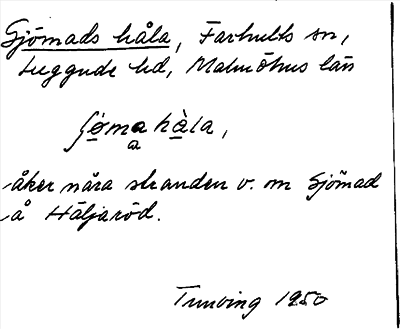 Sjömads håla, Farhults sn,
Luggude hd, Malmöhus län
ʃø̱ma hàla,
a
åker nära stranden v. om Sjömad
å Häljaröd.
Tuneving 1950